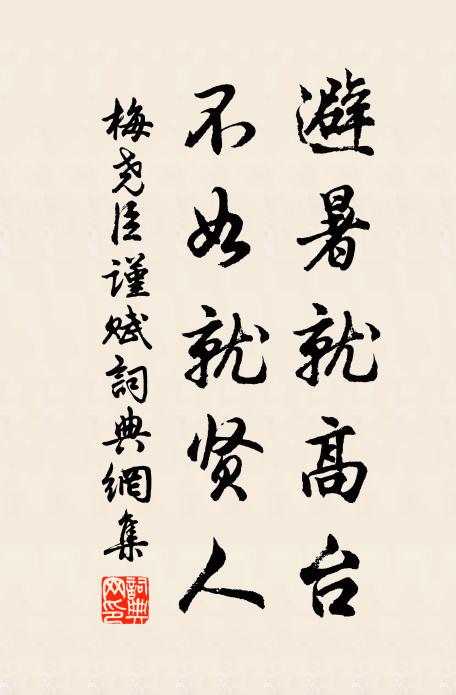 避暑就高台
不如就贤人
梅尧臣谨赋词典網集
詞典网印